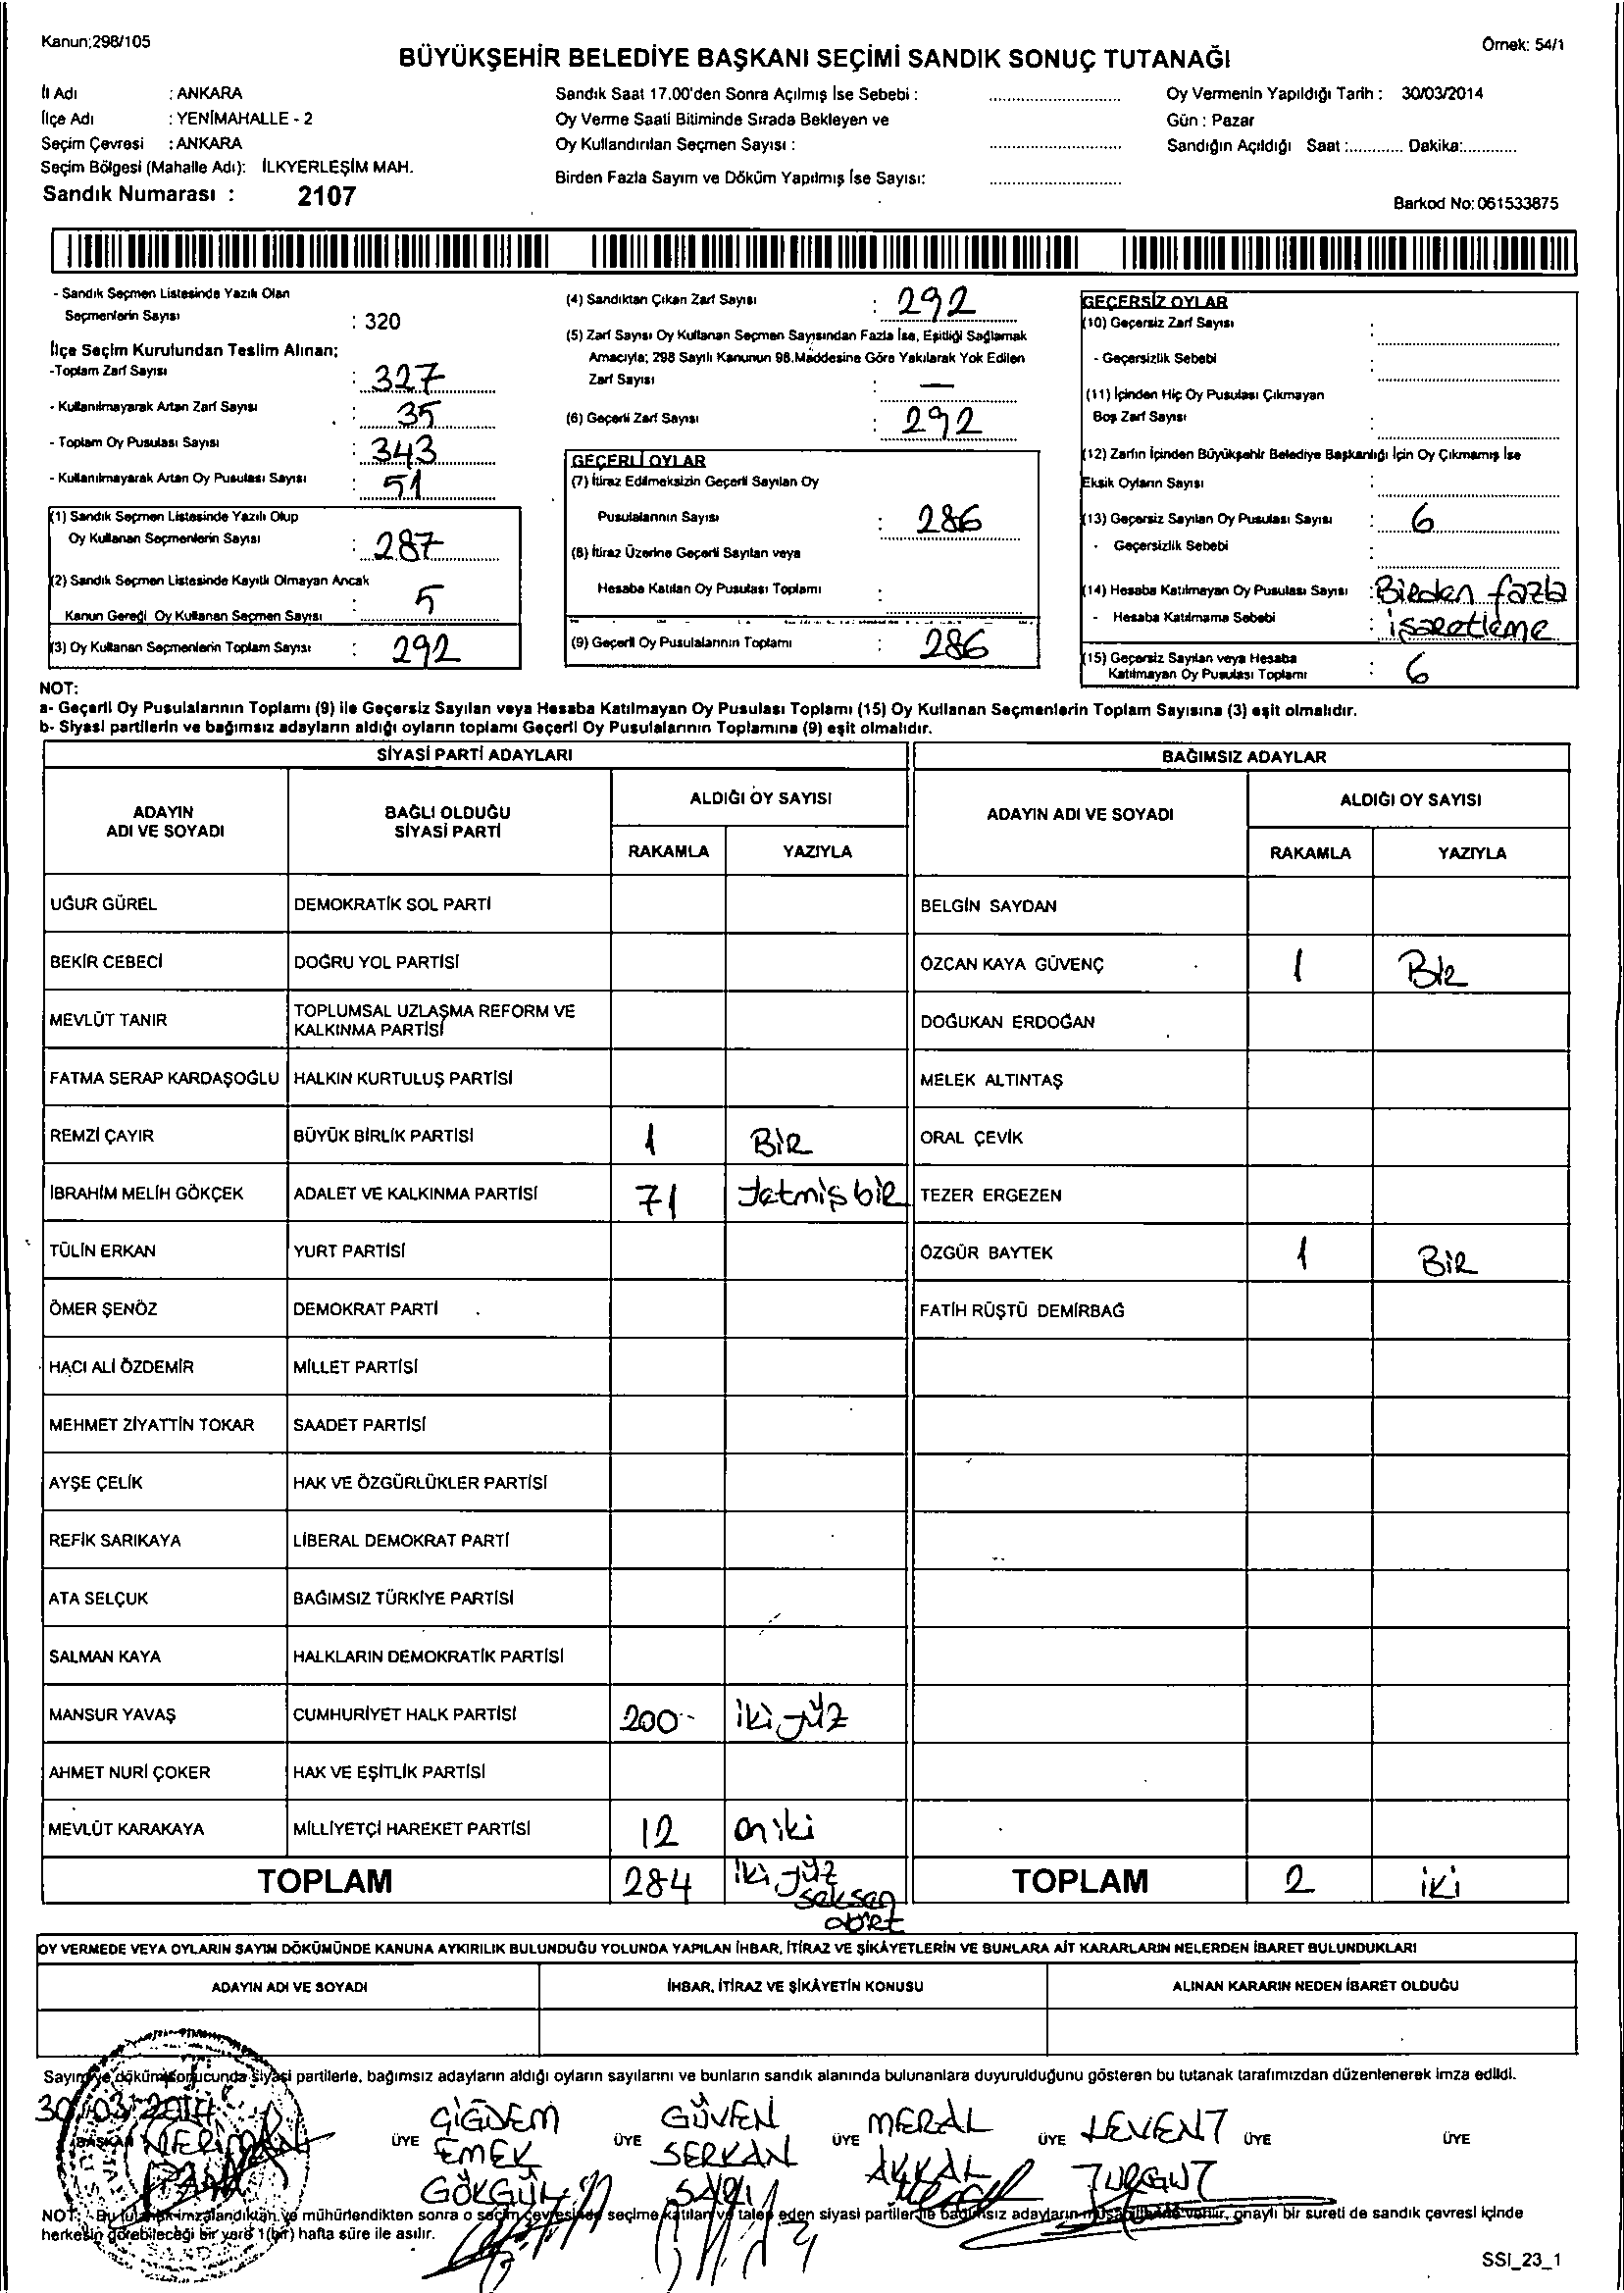 Kanun;298/105
Örnek: 54/1
BÜYÜKŞEHİR BELEDİYE BAŞKANI SEÇİMİ SANDIK SONUÇ TUTANAĞI
İl Adı : ANKARA
İlçe Adı : YENİMAHALLE - 2
Seçim Çevresi : ANKARA
Seçim Bölgesi (Mahalle Adı): İLKYERLEŞİM MAH.
Sandık Numarası : 2107
Sandık Saat 17.00'den Sonra Açılmış İse Sebebi :
Oy Verme Saati Bitiminde Sırada Bekleyen ve
Oy Kullandırılan Seçmen Sayısı :
Birden Fazla Sayım ve Döküm Yapılmış İse Sayısı:
Oy Vermenin Yapıldığı Tarih : 30/03/2014
Gün : Pazar
Sandığın Açıldığı Saat :............ Dakika:............
Barkod No: 061533875
- Sandık Seçmen Listesinde Yazılı Olan
Seçmenlerin Sayısı : 320
İlçe Seçim Kurulundan Teslim Alınan;
-Toplam Zarf Sayısı : 327
- Kullanılmayarak Artan Zarf Sayısı : 35
- Toplam Oy Pusulası Sayısı : 343
- Kullanılmayarak Artan Oy Pusulası Sayısı : 51
(1) Sandık Seçmen Listesinde Yazılı Olup
Oy Kullanan Seçmenlerin Sayısı : 287
(2) Sandık Seçmen Listesinde Kayıtlı Olmayan Ancak
Kanun Gereği Oy Kullanan Seçmen Sayısı : 5
(3) Oy Kullanan Seçmenlerin Toplam Sayısı : 292
(4) Sandıktan Çıkan Zarf Sayısı : 292
(5) Zarf Sayısı Oy Kullanan Seçmen Sayısından Fazla İse, Eşitliği Sağlamak
Amacıyla; 298 Sayılı Kanunun 98.Maddesine Göre Yakılarak Yok Edilen
Zarf Sayısı : —
(6) Geçerli Zarf Sayısı : 292
GEÇERLİ OYLAR
(7) İtiraz Edilmeksizin Geçerli Sayılan Oy
Pusulalarının Sayısı : 286
(8) İtiraz Üzerine Geçerli Sayılan veya
Hesaba Katılan Oy Pusulası Toplamı :
(9) Geçerli Oy Pusulalarının Toplamı : 286
GEÇERSİZ OYLAR
(10) Geçersiz Zarf Sayısı :
- Geçersizlik Sebebi :
(11) İçinden Hiç Oy Pusulası Çıkmayan
Boş Zarf Sayısı :
(12) Zarfın İçinden Büyükşehir Belediye Başkanlığı İçin Oy Çıkmamış İse
Eksik Oyların Sayısı :
(13) Geçersiz Sayılan Oy Pusulası Sayısı : 6
- Geçersizlik Sebebi :
(14) Hesaba Katılmayan Oy Pusulası Sayısı : Birden fazla
- Hesaba Katılmama Sebebi : işaretleme
(15) Geçersiz Sayılan veya Hesaba
Katılmayan Oy Pusulası Toplamı : 6
NOT:
a- Geçerli Oy Pusulalarının Toplamı (9) ile Geçersiz Sayılan veya Hesaba Katılmayan Oy Pusulası Toplamı (15) Oy Kullanan Seçmenlerin Toplam Sayısına (3) eşit olmalıdır.
b- Siyasi partilerin ve bağımsız adayların aldığı oyların toplamı Geçerli Oy Pusulalarının Toplamına (9) eşit olmalıdır.
SİYASİ PARTİ ADAYLARI BAĞIMSIZ ADAYLAR
ADAYIN ADI VE SOYADI BAĞLI OLDUĞU SİYASİ PARTİ ALDIĞI OY SAYISI ADAYIN ADI VE SOYADI ALDIĞI OY SAYISI
RAKAMLA YAZIYLA RAKAMLA YAZIYLA
UĞUR GÜREL DEMOKRATİK SOL PARTİ BELGİN SAYDAN
BEKİR CEBECİ DOĞRU YOL PARTİSİ ÖZCAN KAYA GÜVENÇ 1 BİR
MEVLÜT TANIR TOPLUMSAL UZLAŞMA REFORM VE KALKINMA PARTİSİ DOĞUKAN ERDOĞAN
FATMA SERAP KARDAŞOĞLU HALKIN KURTULUŞ PARTİSİ MELEK ALTINTAŞ
REMZİ ÇAYIR BÜYÜK BİRLİK PARTİSİ 1 BİR ORAL ÇEVİK
İBRAHİM MELİH GÖKÇEK ADALET VE KALKINMA PARTİSİ 71 Yetmiş bir TEZER ERGEZEN
TÜLİN ERKAN YURT PARTİSİ ÖZGÜR BAYTEK 1 BİR
ÖMER ŞENÖZ DEMOKRAT PARTİ FATİH RÜŞTÜ DEMİRBAĞ
HACI ALİ ÖZDEMİR MİLLET PARTİSİ
MEHMET ZİYATTİN TOKAR SAADET PARTİSİ
AYŞE ÇELİK HAK VE ÖZGÜRLÜKLER PARTİSİ
REFİK SARIKAYA LİBERAL DEMOKRAT PARTİ
ATA SELÇUK BAĞIMSIZ TÜRKİYE PARTİSİ
SALMAN KAYA HALKLARIN DEMOKRATİK PARTİSİ
MANSUR YAVAŞ CUMHURİYET HALK PARTİSİ 200 iki yüz
AHMET NURİ ÇOKER HAK VE EŞİTLİK PARTİSİ
MEVLÜT KARAKAYA MİLLİYETÇİ HAREKET PARTİSİ 12 on iki
TOPLAM 284 iki yüz seksen dört TOPLAM 2 iki
OY VERMEDE VEYA OYLARIN SAYIM DÖKÜMÜNDE KANUNA AYKIRILIK BULUNDUĞU YOLUNDA YAPILAN İHBAR, İTİRAZ VE ŞİKÂYETLERİN VE BUNLARA AİT KARARLARIN NELERDEN İBARET BULUNDUKLARI
ADAYIN ADI VE SOYADI İHBAR, İTİRAZ VE ŞİKÂYETİN KONUSU ALINAN KARARIN NEDEN İBARET OLDUĞU
Sayım ve döküm sonucunda siyasi partilerle, bağımsız adayların aldığı oyların sayılarını ve bunların sandık alanında bulunanlara duyurulduğunu gösteren bu tutanak tarafımızdan düzenlenerek imza edildi.
30/03/2014
BAŞKAN NERİMAN
ÜYE ÇİĞDEM EMEK GÖKGÜL
ÜYE GÜVEN SERKAN SARI
ÜYE MERAL AKKAL
ÜYE LEVENT TURGUT
ÜYE
ÜYE
NOT: Bu tutanak imzalandıktan ve mühürlendikten sonra o seçim çevresinde seçime katılan ve talep eden siyasi partiler ile bağımsız adayların müşahitlerine verilir, onaylı bir sureti de sandık çevresi içinde
herkesin görebileceği bir yere 1(bir) hafta süre ile asılır.
SSI_23_1